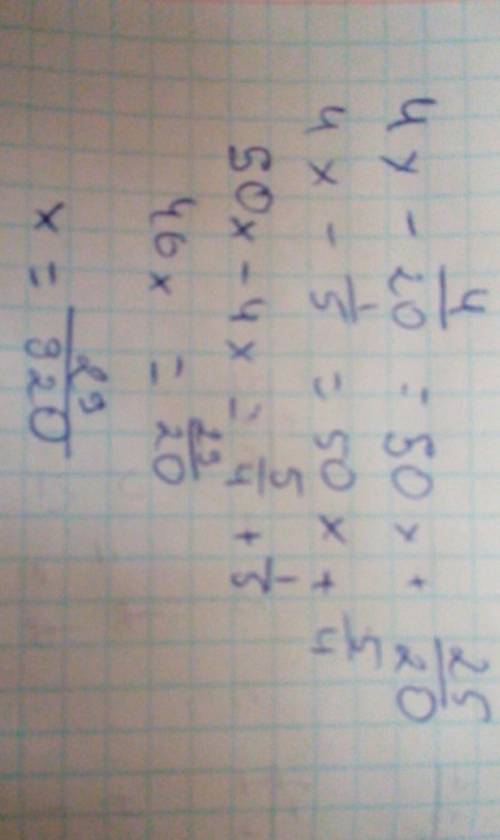 4x - 4/20 = 50x + 25/20
4x - 1/5 = 50x + 5/4
50x - 4x = 5/4 + 1/5
46x = 29/20
x = 29/920